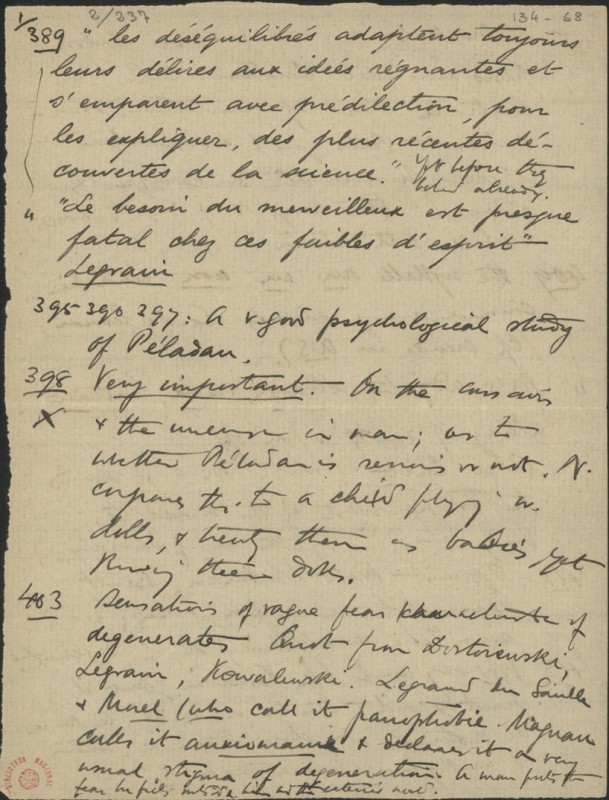 1/ 2/337 134-68
389 " les déséquilibrés adaptent toujours
leurs délires aux idées régnantes et
s'emparent avec prédilection, pour
les expliquer, des plus récentes dé-
couvertes de la science." Yet before they
" "Le besoin du merveilleux est presque
fatal chez ces faibles d'esprit"
Legrain
395 390 397: A v. good psychological study
of Péladan.
398 Very important. On the conscious
X & the unconsc. in man; as to
whether Péladan is serious or not. N.
compares th. to a child playing w.
dolls, & treating them as babies, yet
knowing them dolls.
403 Sensations of vague fear characteristic of
degenerates Quot from Dostoiewski,
Legrain, Kowalewski. Legrand du Saulle
& Morel (who call it panophobie. Magnan
calls it anxiomanie & declares it a very
usual stigma of degeneration. A man puts the
fear he feels
BIBLIOTECA NACIONAL